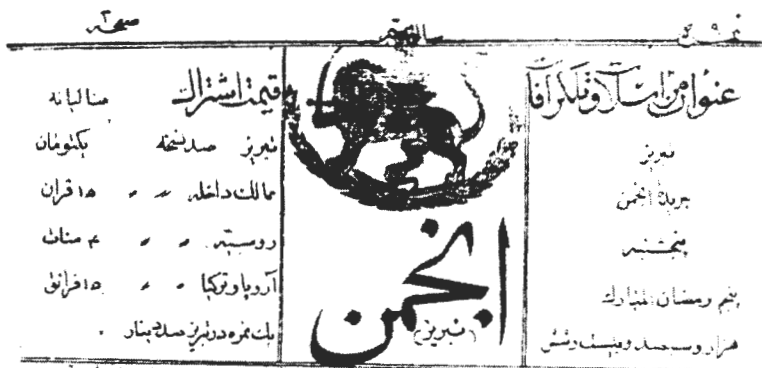 نمره ۹ سال سیم صفحه ۲
عنوان مراسلات و تلگرافات
تبریز
جریدهٔ انجمن
پنجشنبه
پنجم رمضان المبارك
هزار و سیصد و بیست و شش
انجمن
(تبریز)
قیمت اشتراك سالیانه
تبریز صد نسخه یکتومان
ممالك داخله ״ ״ ۱۵ قران
روسیه ״ ״ ۴ منات
آروپا و ترکیا ״ ״ ۱۵ فرانق
یك نمره در تبریز صد دینار .